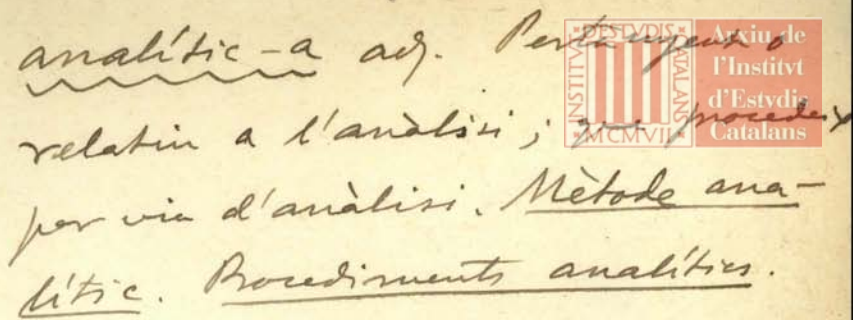 analític-a adj. Pertanyent o
relatiu a l'anàlisi; que procedeix
per via d'anàlisi. Mètode ana-
lític. Procediments analítics.
INSTITVT D'ESTVDIS CATALANS
MCMVII
Arxiu de
l'Institvt
d'Estvdis
Catalans